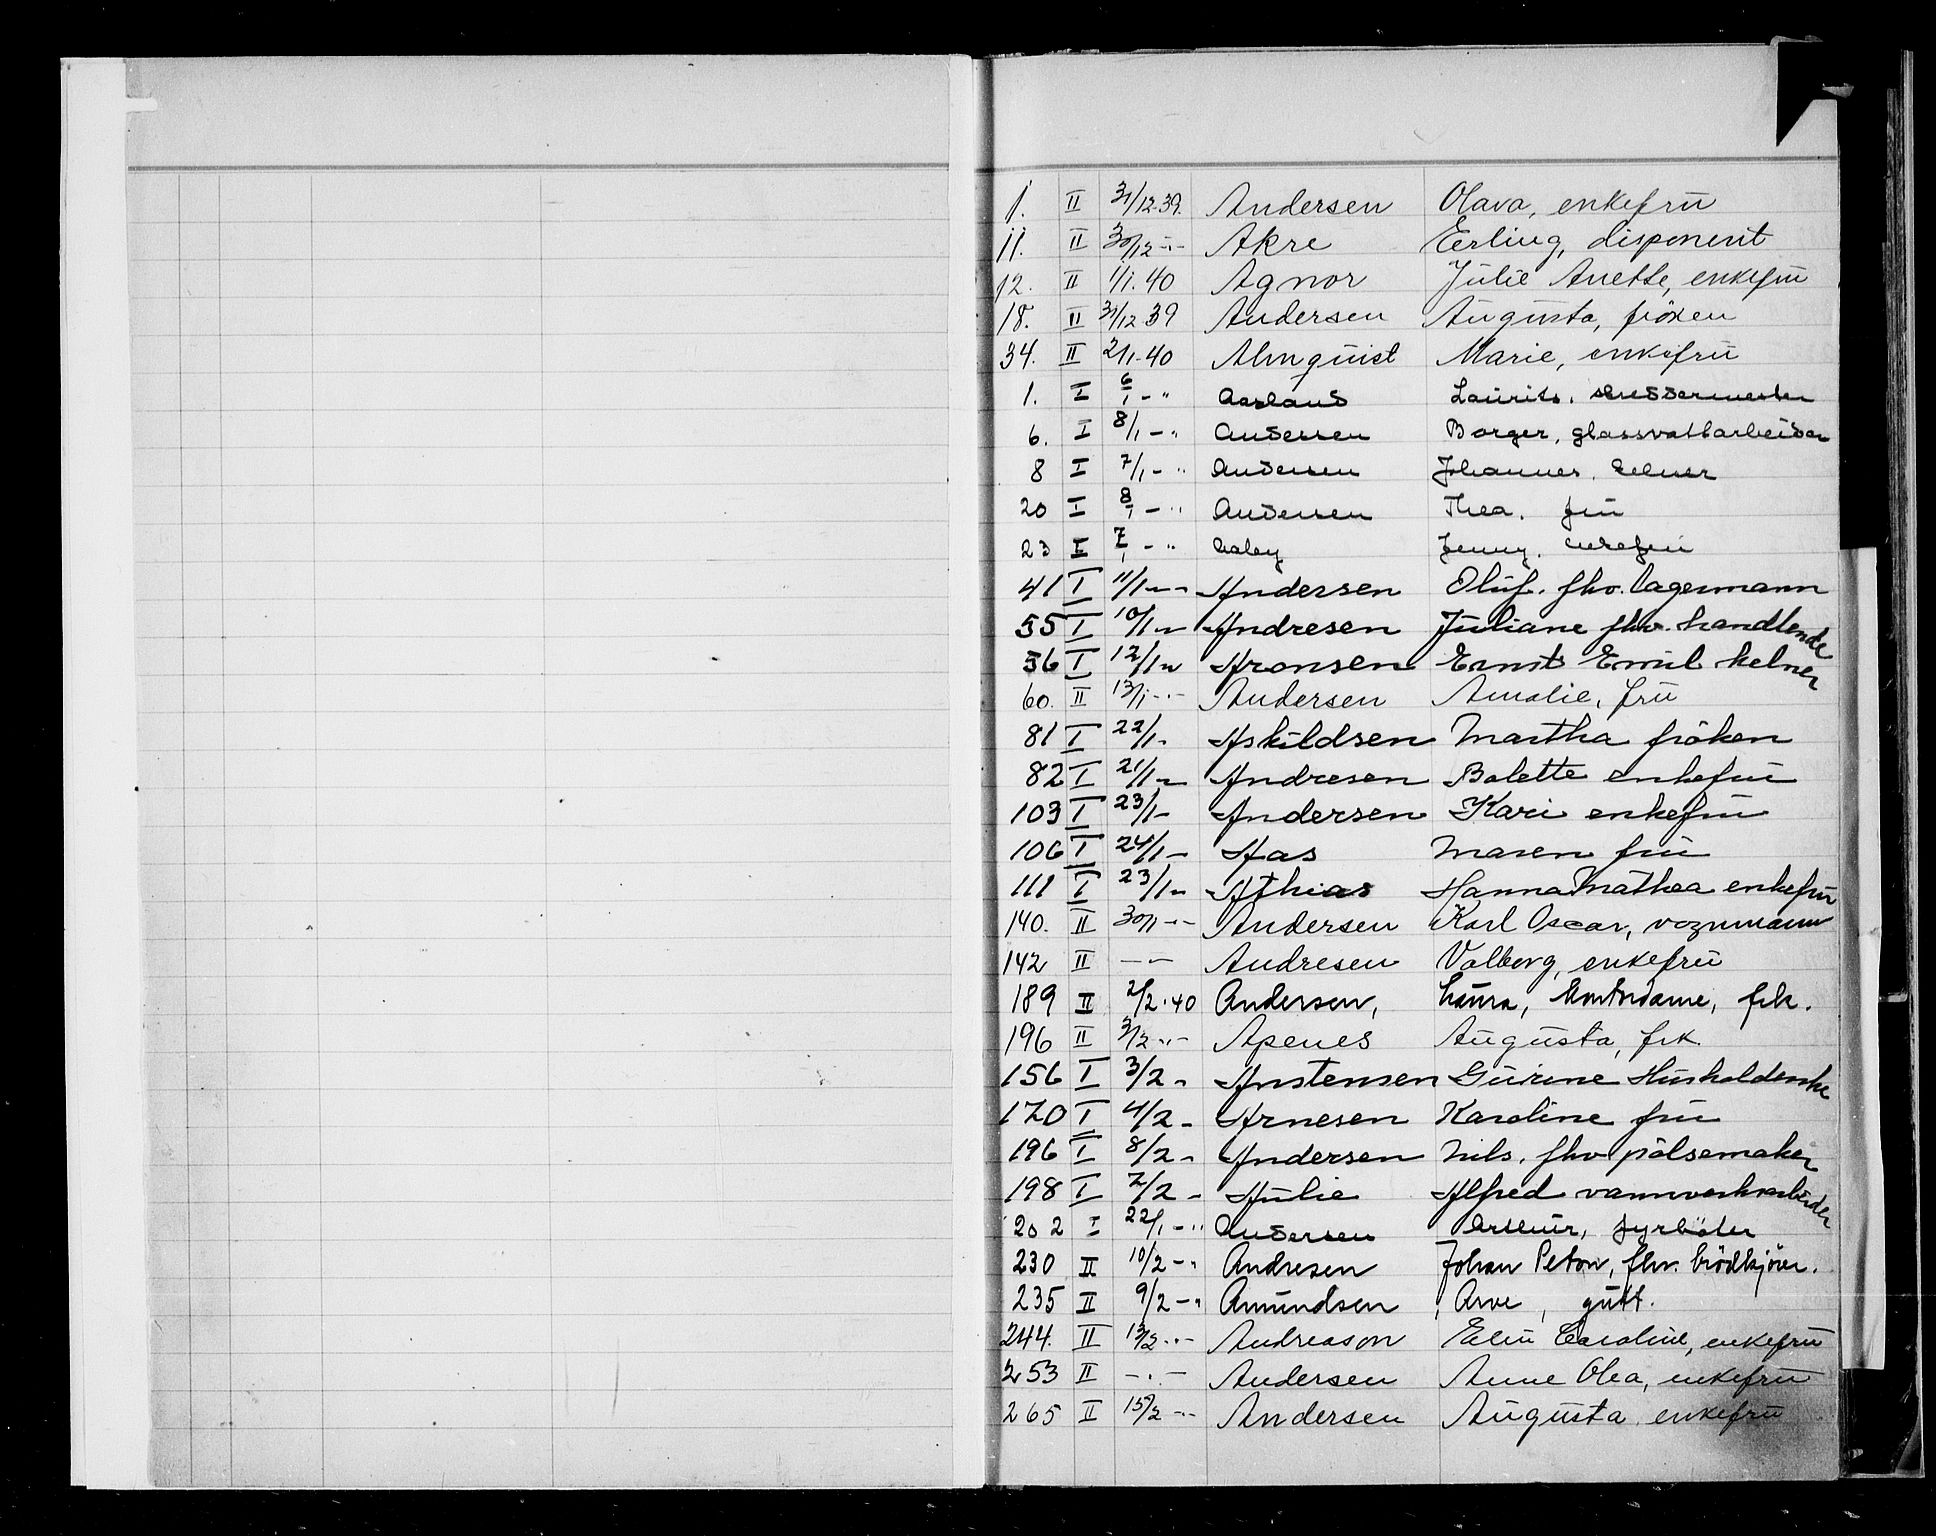 1. II 31/12.39. Andersen Olava, enkefrü
11. II 30/12 -"- Akre Erling, disponent
12. II 1/1.40 Agnor Julie Anette, enkefrü
18. II 31/12 39 Andersen Augusta, fröken
34. II 2/1-40 Almquist Marie, enkefrü
1. I 6/1 - " Aasland Laurits. skreddermester
6. I 8/1 - " Andersen Borger, glassvattarbeider
8 I 7/1 - " Andersen Johannes. kelner
20 I 8/1 - " Andersen Thea. frü
23 I 7/1 - " Aaby Jenny. enkefrü
41 I 11/1 - - Andersen Oluf. fhv. lagermann
55 I 10/1 - Andresen Juliane fhv. handlende
56 I 12/1 " Aronsen Ernst Emil kelner
60. II 13/1 -"- Andersen Amalie, frü
81 I 22/1 - Askildsen Martha fröken
82 I 21/1 - Andresen Bolette enkefrü
103 I 23/1 - Andersen Kari enkefrü
106 I 24/1 - Aas Maren frü
111 I 23/1 " Athias Hanna Mathea enkefrü
140. II 30/1 -"- Andersen Karl Oscar, vognmann
142 II -"- Andresen Valborg, enkefrü
189 II 2/2.40 Andersen, Laura, kontordame, frk.
196 II 3/2 -"- Apenes Augusta, frk.
156 I 3/2 - Anstensen Gurine Husholderske
170 I 4/2 - Arnesen Karoline frü
196 I 8/2 - Andersen Nils. fhv pölsemaker
198 I 7/2 - Aulie Alfred vannverksarbeider
202 I 22/1 - " Andersen Arthur, fyrböter
230 II 10/2 - " Andresen Johan Peton, fhv. brödkjörer.
235 II 9/2 - " Amundsen , Arve , gutt.
244. II 13/2 -"- Andreason Elin Caroline, enkefrü
253 II -"- Andersen Anne Olea, enkefrü
265 II 15/2 -"- Andersen Augusta, enkefrü